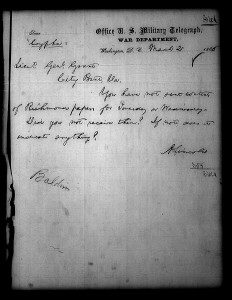 Office U. S. Military Telegraph,
WAR DEPARTMENT,
Washington, D. C. March 2 1865
Lieut Genl Grant
City Point Va.
You have not sent contents
of Richmond papers for Tuesday or Wednesday
Did you not receive them? If not does it
indicate anything?
A Lincoln